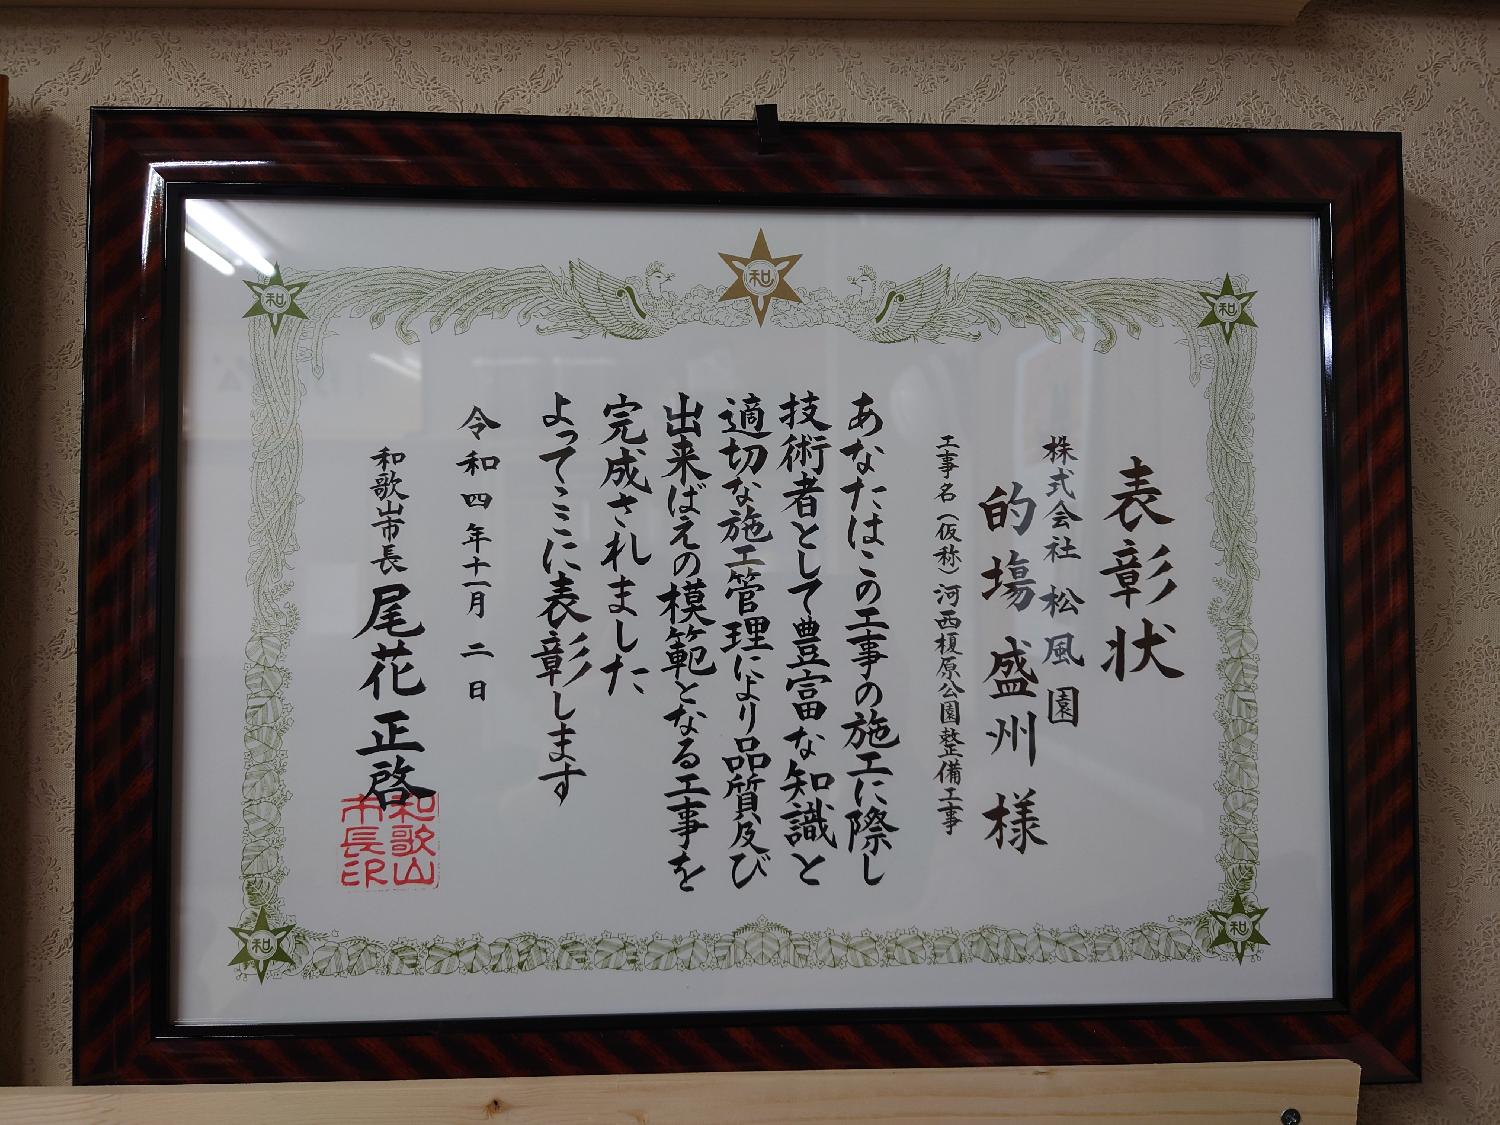 表彰状
株式会社 松風園
的場 盛州 様
工事名（仮称）河西榎原公園整備工事
あなたはこの工事の施工に際し
技術者として豊富な知識と
適切な施工管理により品質及び
出来ばえの模範となる工事を
完成されました
よってここに表彰します
令和四年十一月二日
和歌山市長 尾花正啓
和歌山
市長印
和
和
和
和
和